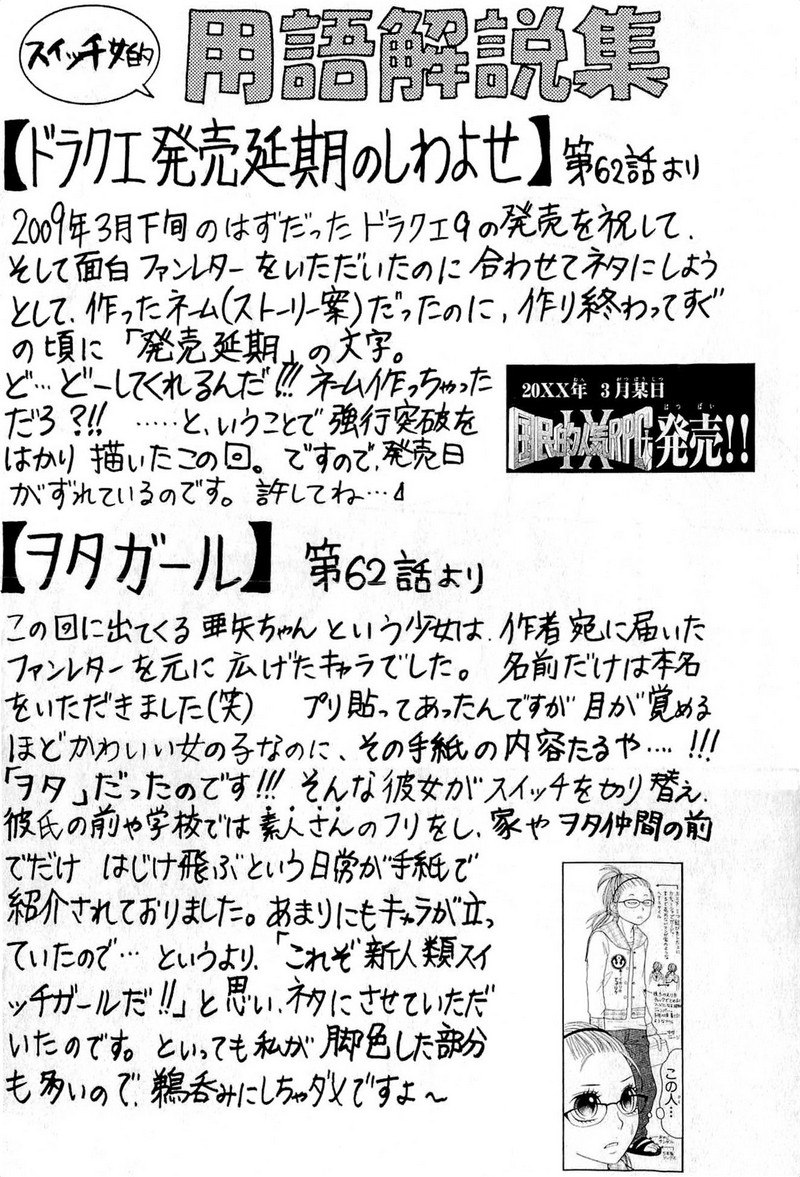 スイッチ女的
用語解説集
【ドラクエ発売延期のしわよせ】第62話より
2009年3月下旬のはずだったドラクエ9の発売を祝して、
そして面白ファンレターをいただいたのに合わせてネタにしよう
として、作ったネーム(ストーリー案)だったのに、作り終わってすぐ
の頃に「発売延期」の文字。
ど…どーしてくれるんだ!!! ネーム作っちゃった
だろ?!! ……と、いうことで強行突破を
はかり描いたこの回。ですので、発売日
がずれているのです。許してね…
20XX年 3月某日
国民的人気RPG IX 発売!!
【ヲタガール】 第62話より
この回に出てくる亜矢ちゃんという少女は、作者宛に届いた
ファンレターを元に広げたキャラでした。名前だけは本名
をいただきました(笑) プリ貼ってあったんですが目が覚める
ほどかわいい女の子なのに、その手紙の内容たるや…. !!!
「ヲタ」だったのです!!! そんな彼女がスイッチを切り替え、
彼氏の前や学校では素人さんのフリをし、家やヲタ仲間の前
でだけ はじけ飛ぶという日常が手紙で
紹介されておりました。あまりにもキャラが立っ
ていたので… というより、「これぞ新人類スイ
ッチガールだ!!」と思い、ネタにさせていただ
いたのです。といっても私が脚色した部分
も多いので、鵜呑みにしちゃダメですよ〜
この人…